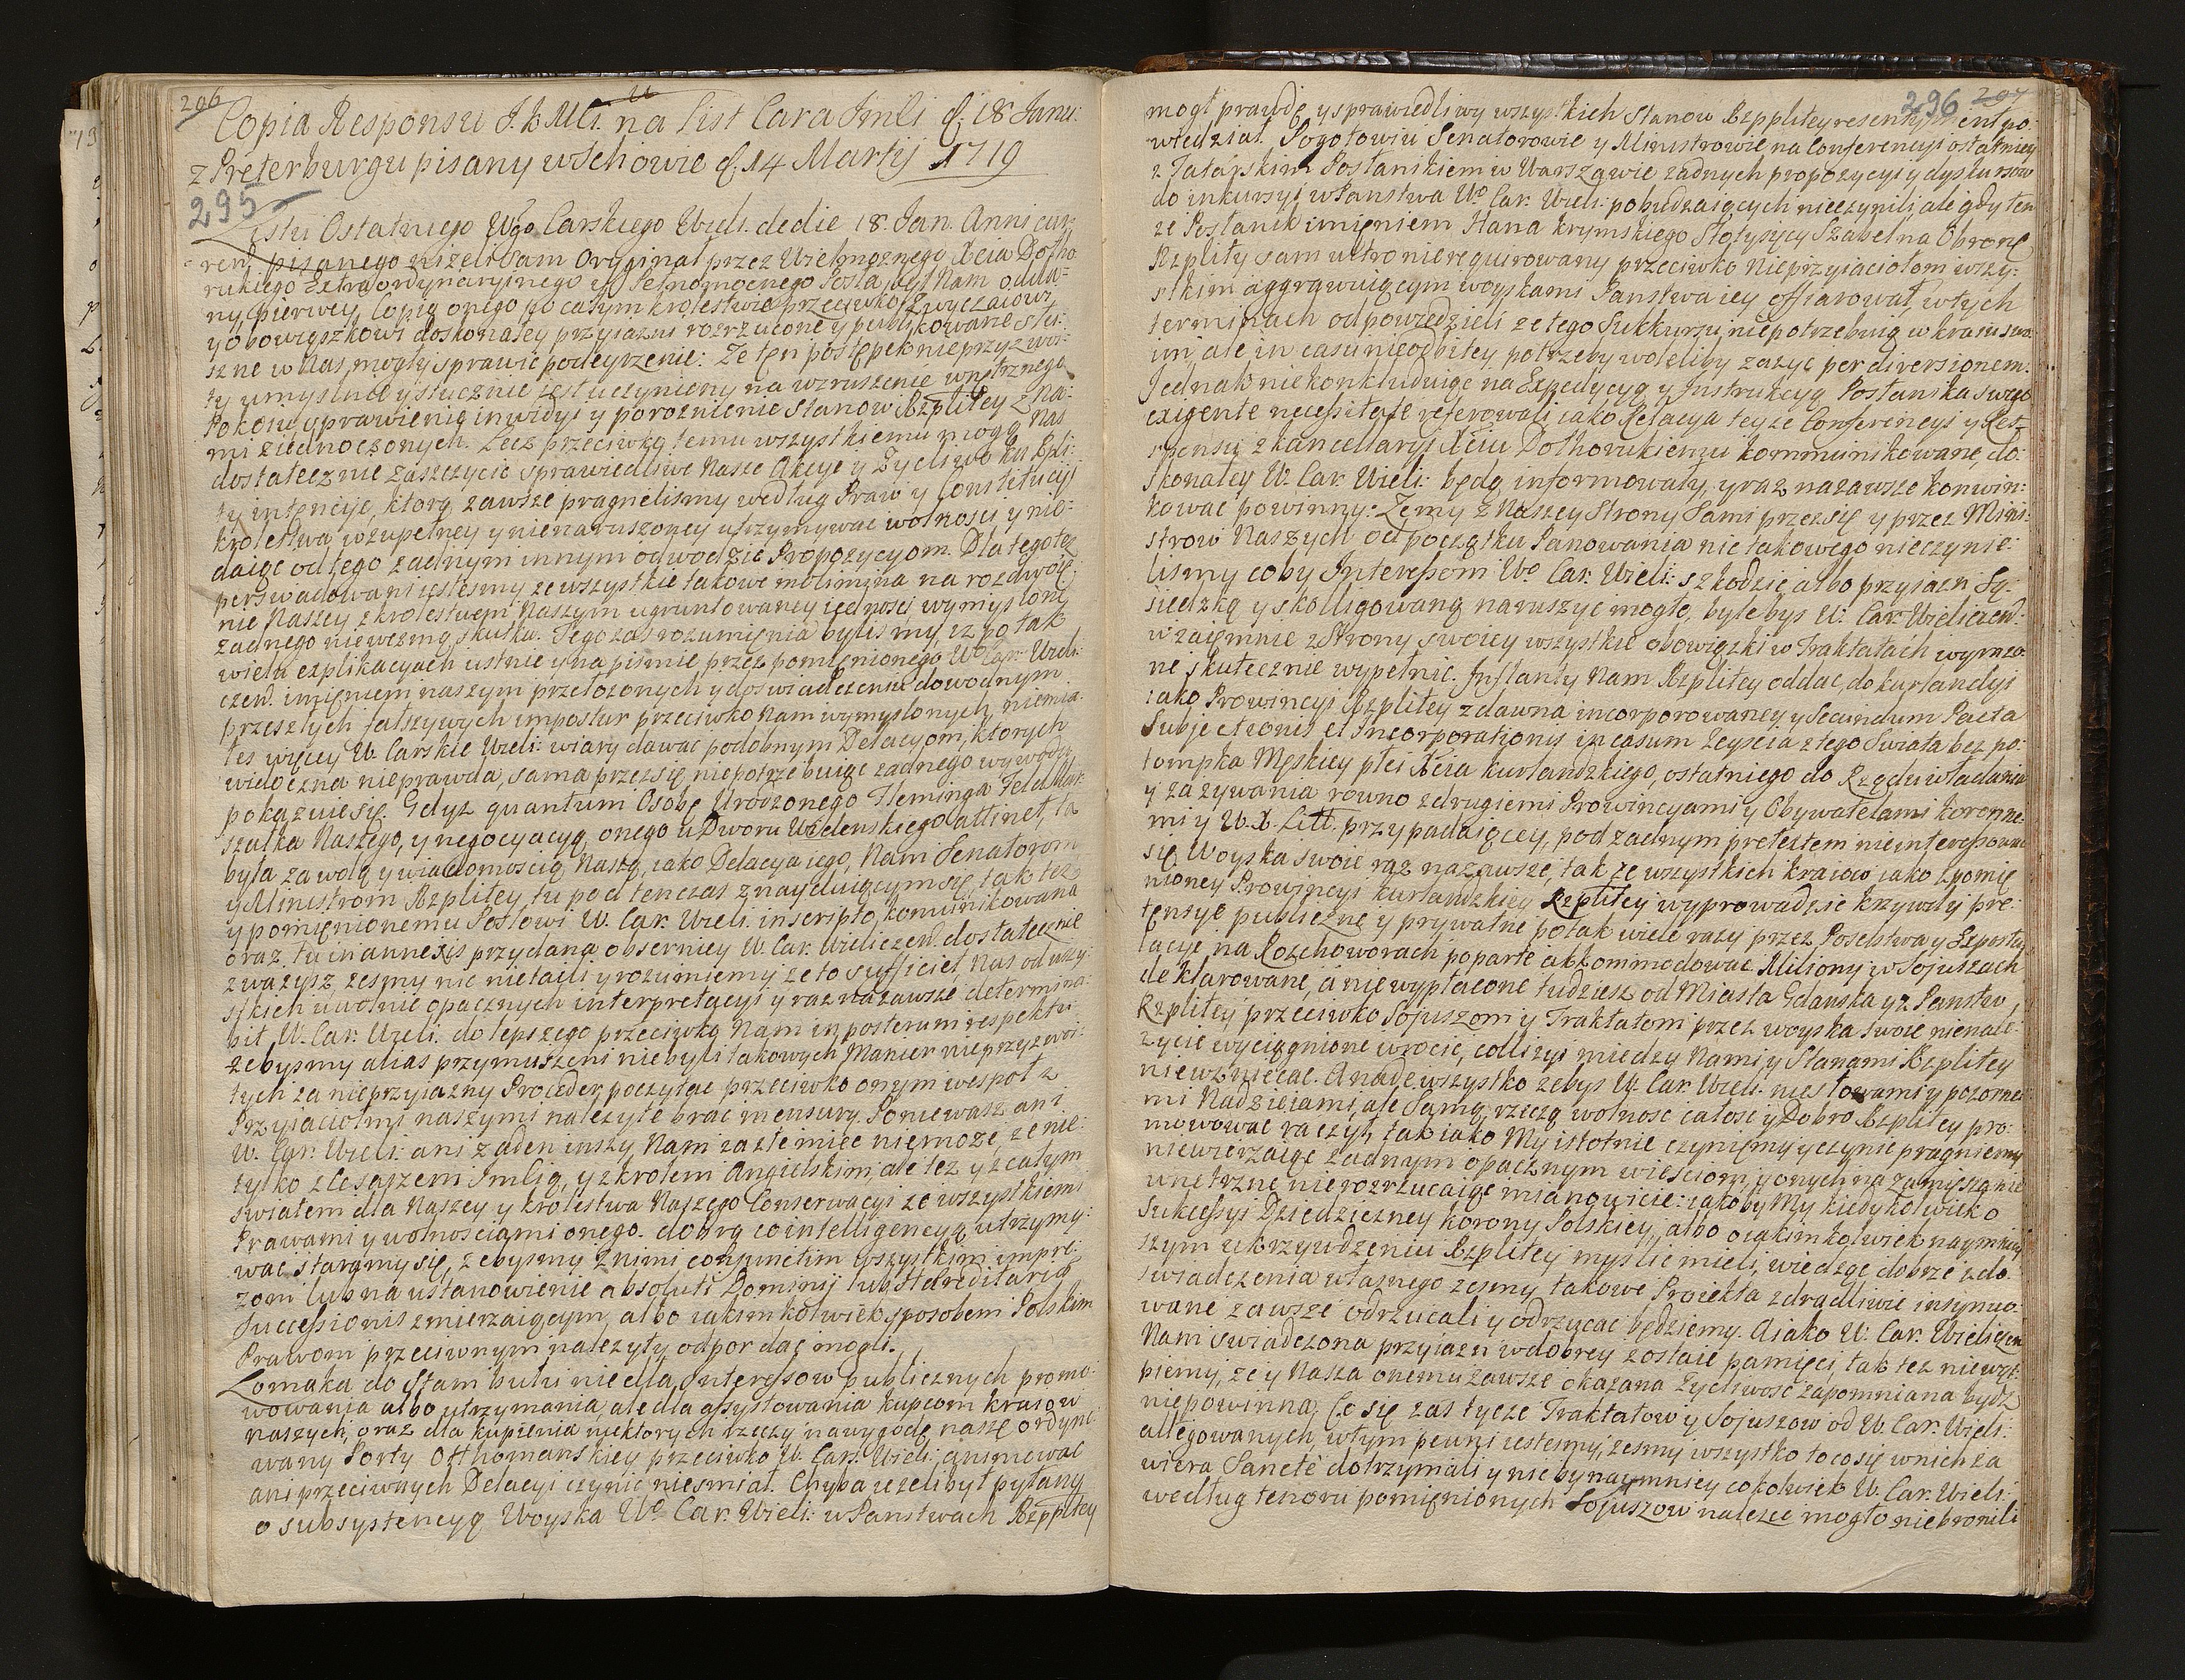 296
Copia Responsu J. K. Mci. na List Cara Jmci d. 18 Janu:
z Preterburgu pisany wschowie d. 14 Martij 1719
295
Listu Ostatniego Wgo Carskiego Wieli. de die 18. Jan. Anni cur
ren. pisanego nizeli sam Oryginał przez Wielmoznego Xcia Dołho
rukiego Extraordynaryinego y Pełnomocnego Posła, był Nam odda-
ny, pierwey Copia onego po całym krolestwie przeciwko Zwyczaiowi
y obowiązkowi doskonałey przyiazni rozrzucone y publikowane słu:
szne w Nas mogły sprawic podeyrzenie: Ze ten postępek nieprzyzwoi:
ty umyslnie y sztucznie iest uczyniony na wzruszenie wnętrznego
Pokoiu, y sprawienie inwidyi y poroznienie Stanow Rzplitey z Na:
mi ziednoczonych. Lecz przeciwko temu wszystkiemu mogą Nas
dostatecznie zaszczycic sprawiedliwe Nasze Akcye y Zycliwe ku Rpli:
ty intencye, ktorą zawsze pragnelismy według Praw y Constitucyi
krolestwa w zupełney y nienaruszoney utrzymywac wolnosci y nie-
daiąc od tego zadnym innym odwodzic Propozycyom. Dla tego tez
perswadowani iestesmy ze wszystkie takowe molimina na rozdwoie
nie Naszey z krolestwem Naszym ugruntowaney iednosci wymyslone
zadnego niewezmą skutku. Tego zas rozumienia bylismy, iz po tak
wielu explikacyach ustnie y na pismie przez pomienionego Wo Car. Wieli:
czen. imieniem naszym przełozonych y doswiadczeniu dowodnym
przeszłych fałszywych impostur przeciwko Nam wymyslonych, niemia
łes więcey W. Carskie Wieli: wiary dawac podobnym Delacyom, ktorych
widoczna nieprawda, sama przez się niepotrzebuiąc zadnego wywodu
pokazuie się. Gdyz quantum Osobę Urodzonego Fleminga Feld Mar
szałka Naszego, y negocyacyą onego u Dworu Wiedenskiego attinet, ta
była za wolą y wiadomoscią Naszą, iako Delacya iego, Nam Senatorom
y Ministrom Rzplitey, tu pod tenczas znayduiącym się, tak tez
y pomienionemu Posłowi W. Car. Wieli. in scripto, komunikowana
oraz tu in annexis przydana obserniey W. Car. Wieliczen. dostatecznie
zwazysz, zesmy nic nietaili y rozumiemy ze to sufficiet, Nas od wszy:
stkich uwolnic opacznych interpretacyi y raz nazawsze determina:
bit W. Car. Wieli. do lepszego przeciwko Nam in posterum respektu
zebysmy alias przymuszeni niebyli takowych Manier nieprzyzwoi:
tych za nieprzyiazny Proceder poczytac przeciwko onym wespoł z
Przyiaciołmi naszymi nalezyte brac mensury. Poniewasz ani
W. Car. Wieli: ani zaden inszy Nam zazłe miec niemoze, ze nie:
tylko z Cesarzem Jmcią, y z krolem Angielskim, ale tez y z całym
swiatem dla Naszey y krolestwa Naszego Conserwacyi ze wszystkiemi
Prawami y wolnosciami onego. dobrą cointelligencyą utrzymy:
wac staramy się, zebysmy z nimi conjunctim wszystkim impre:
zom lub na ustanowienie absoluti Dominij lub Haereditariae
Successionis zmierzaiącym, albo iakimkolwiek sposobem Polskim
Prawom przeciwnym nalezyty odpor dac mogli.
Lomaka do Stambułu nie dla Interessow publicznych promo:
wowania albo utrzymania, ale dla assystowania kupcom kraiow
naszych, oraz dla kupienia niektorych rzeczy na wygodę naszę ordyno
wany Porty Otthomanskiey przeciwko W. Car. Wieli. animowac
ani przeciwnych Delacyi czynic niesmiał. Chyba iezeli był pytany
o subsystencyą Woyska Wo Car. Wieli: w Panstwach Rzpplitey
296 297
mogł prawdę y sprawiedliwy wszystkich Stanow Rzpplitey resentyment po:
wiedział. Pogotowiu Senatorowie y Ministrowie na Conferencyi ostatniey
z Tatarskim Posłanikiem w Warszawie zadnych propozycyi y dyskursow
do inkursyi w Panstwa Wo Car. Wieli: pobudzaiących nieczynili, ale gdy ten
ze Posłanik imięniem Hana krymskiego Stotysięcy Szabel na Obronę
Rzplity sam ultro nierequirowany przeciwko Nieprzyiaciołom wszy:
stkim aggrawuiącym woyskami Panstwa iey offiarował, w tych
terminach odpowiedzieli ze tego Sukkursu niepotrzebuią w kraiu swo
im, ale in casu nieodbitey potrzeby woleliby zazyc per diversionem.
Jednak niekonkluduiąc na Expedycyą y Instrukcyą Posłanika swego
exigente necessitate referowali, iako Relacya teyze Conferencyi y Res-
spensu z kancellaryi Xciu Dołhorukiemu kommunikowane, do:
skonałey W. Car. Wieli: będą informowały, y raz nazawsze konwin:
kowac powinny: Zemy z Naszey Strony Sami przez się y przez Mini:
strow Naszych od początku Panowania nic takowego nieczynie:
lismy coby Interessom Wo Car. Wieli: szkodzic albo przyiazn Są:
siedzką y skolligowaną naruszyc mogło, bylebys W. Car. Wieliczen:
wzaiemnie z Strony swoiey wszystkie obowiązki w Traktatach wyrazo
ne skutecznie wypełnił. Inflanty Nam Rzplitey oddac, do kurlandyi
iako Prowincyi Rzplitey zdawna incorporowaney y Secundum Pacta
Subjectionis et Incorporationis in casum Zeyscia z tego Swiata bez po:
tompka Męskiey płci Xcia kurlandzkiego, ostatniego do Rządu władania
y zazywania rowno z drugiemi Prowincyami y Obywatelami koronne
mi y W. X. Litt. przypadaiącey, pod zadnym pretextem nieinteressowac
się, Woyska swoie raz nazawsze, tak ze wszystkich kraiow iako z pomię
nioney Prowincyi kurlandzkiey Rzplitey wyprowadzic krzywdy pre:
tensye publiczne y prywatne po tak wiele razy przez Poselstwa y Exposta
lacye, na Rozhoworach poparte akkommodowac. Miliony w Sojuszach
deklarowane, a niewypłacone tudziesz od Miasta Gdanska y z Panstw
Rzplitey przeciwko Sojuszom y Traktatom przez woyska swoie nienale:
zycie wyciągnione wrocic, collizyi miedzy Nami y Stanami Rzplitey
niewzniecac. A nade wszystko zebys W. Car. Wieli. nie słowami y pozorne
mi Nadzieiami, ale Samą rzeczą wolnosc całosc y Dobro Rzplitey pro:
mowowac raczył, tak iako My istotnie czyniemy y czynic pragniemy
niewierzaiąc zadnym opacznym wiesciom, y onych na zamieszanie
wnetrzne nierozrzucaiąc mianowicie: iakoby My kiedykolwieko
Sukcessyi Dziedziczney korony Polskiey, albo o iakimkolwiek naymniey
szym ukrzywdzeniu Rzplitey myslic mieli, wiedząc dobrze z do
swiadczenia własnego zesmy takowe Proiekta zdradliwie insynuo:
wane zawsze odrzucali y odrzucac będziemy. A iako W. Car. Wieliczen
Nam swiadczona przyiazn w dobrey zostaie pamięci, tak tez niewąt:
piemy, ze y Nasza onemu zawsze okazana Zycliwosc zapomniana bydz
niepowinna, Co się zas tycze Traktatow y Sojuszow od W. Car. Wieli:
allegowanych, w tym pewni iestesmy, zesmy wszystko to co się w nich za
wiera Sanctè dotrzymali y nic bynaymniey cokolwiek W. Car. Wieli:
według tenoru pomięnionych Sojuszow nalezec mogło niebronili